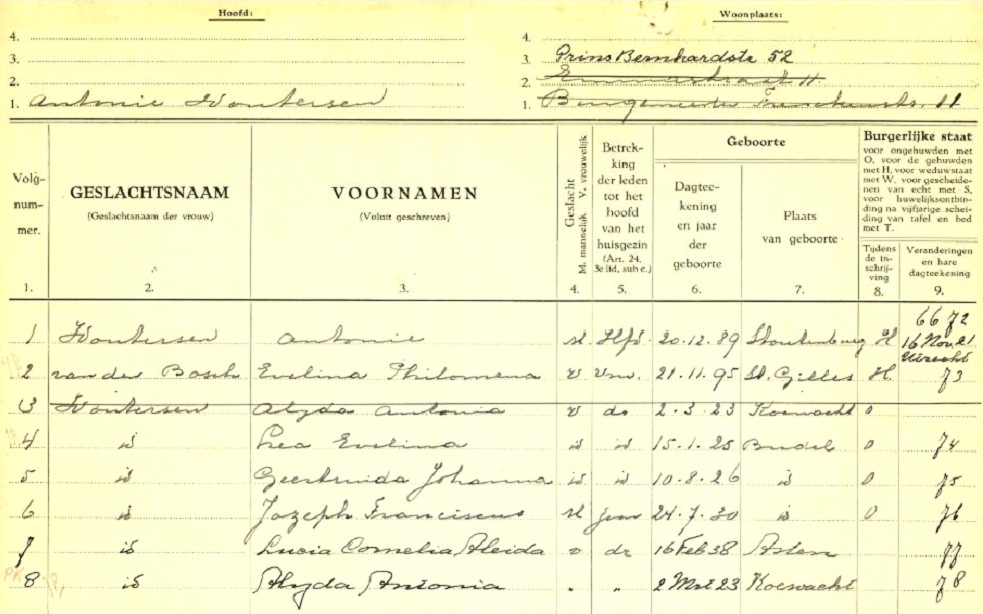 Hoofd:
Woonplaats:
4.
4.
3.
3. Prins Bernhardstr 52
2.
2. Emmastraat 11
1. Antonie Woutersen
1. Burgemeester Frenckenstr. 11
Volg-
num-
mer.
GESLACHTSNAAM
(Geslachtsnaam der vrouw)
VOORNAMEN
(Voluit geschreven)
Geslacht
M. mannelijk V. vrouwelijk
Betrek-
king
der leden
tot het
hoofd
van het
huisgezin
(Art. 24,
3e lid, sub e.)
Geboorte
Dagtee-
kening
en jaar
der
geboorte
Plaats
van geboorte
Burgerlijke staat
voor ongehuwden met
O, voor de gehuwden
met H, voor weduwstaat
met W, voor gescheide-
nen van echt met S,
voor huwelijksontbin-
ding na vijfjarige schei-
ding van tafel en bed
met T.
Tijdens
de in-
schrij-
ving
Veranderingen
en hare
dagteekening
1. 2. 3. 4. 5. 6. 7. 8. 9.
6672
1 Woutersen Antonie M Hfd 20.12.89 Stoutenburg H 16 Nov. 21
Utrecht
2 van der Bosch Evelina Philomena v vrw. 21.11.95 St. Gilles H 73
3 Woutersen Alyda Antonia v dr 2.3.23 Koewacht O
4 id Lea Evelina id id 15.1.25 Budel O 74
5 id Geertruida Johanna id id 10.8.26 id 75
6 id Jozeph Franciscus M zoon 24.7.30 id O 76
7 id Lucia Cornelia Aleida v dr 16 Feb 38 Asten 77
8 id Alyda Antonia " " 2 Mrt 23 Koewacht 78